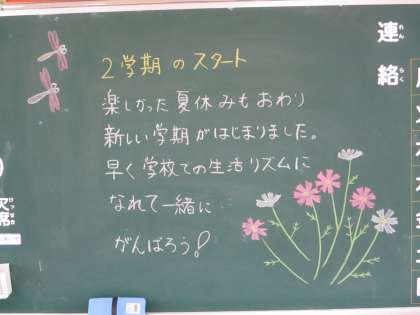 2学期のスタート
楽しかった夏休みもおわり
新しい学期がはじまりました。
早く学校での生活リズムに
なれて一緒に
がんばろう!
連絡
れんらく
欠席
けっせき